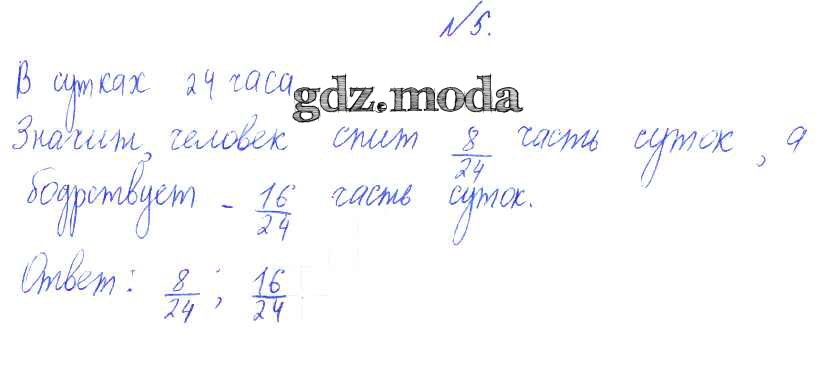 №5.
В сутках 24 часа
gdz.moda
Значит, человек спит 8/24 часть суток, а
бодрствует - 16/24 часть суток.
Ответ: 8/24; 16/24